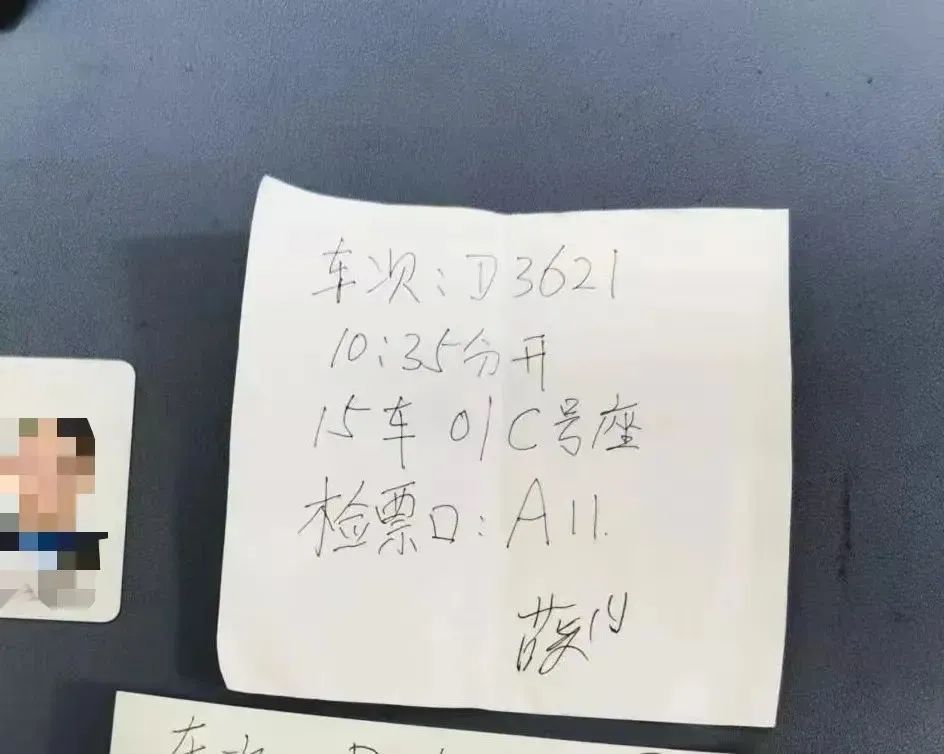 车次:D3621
10:35分开
15车 01C号座
检票口:A11.
车次